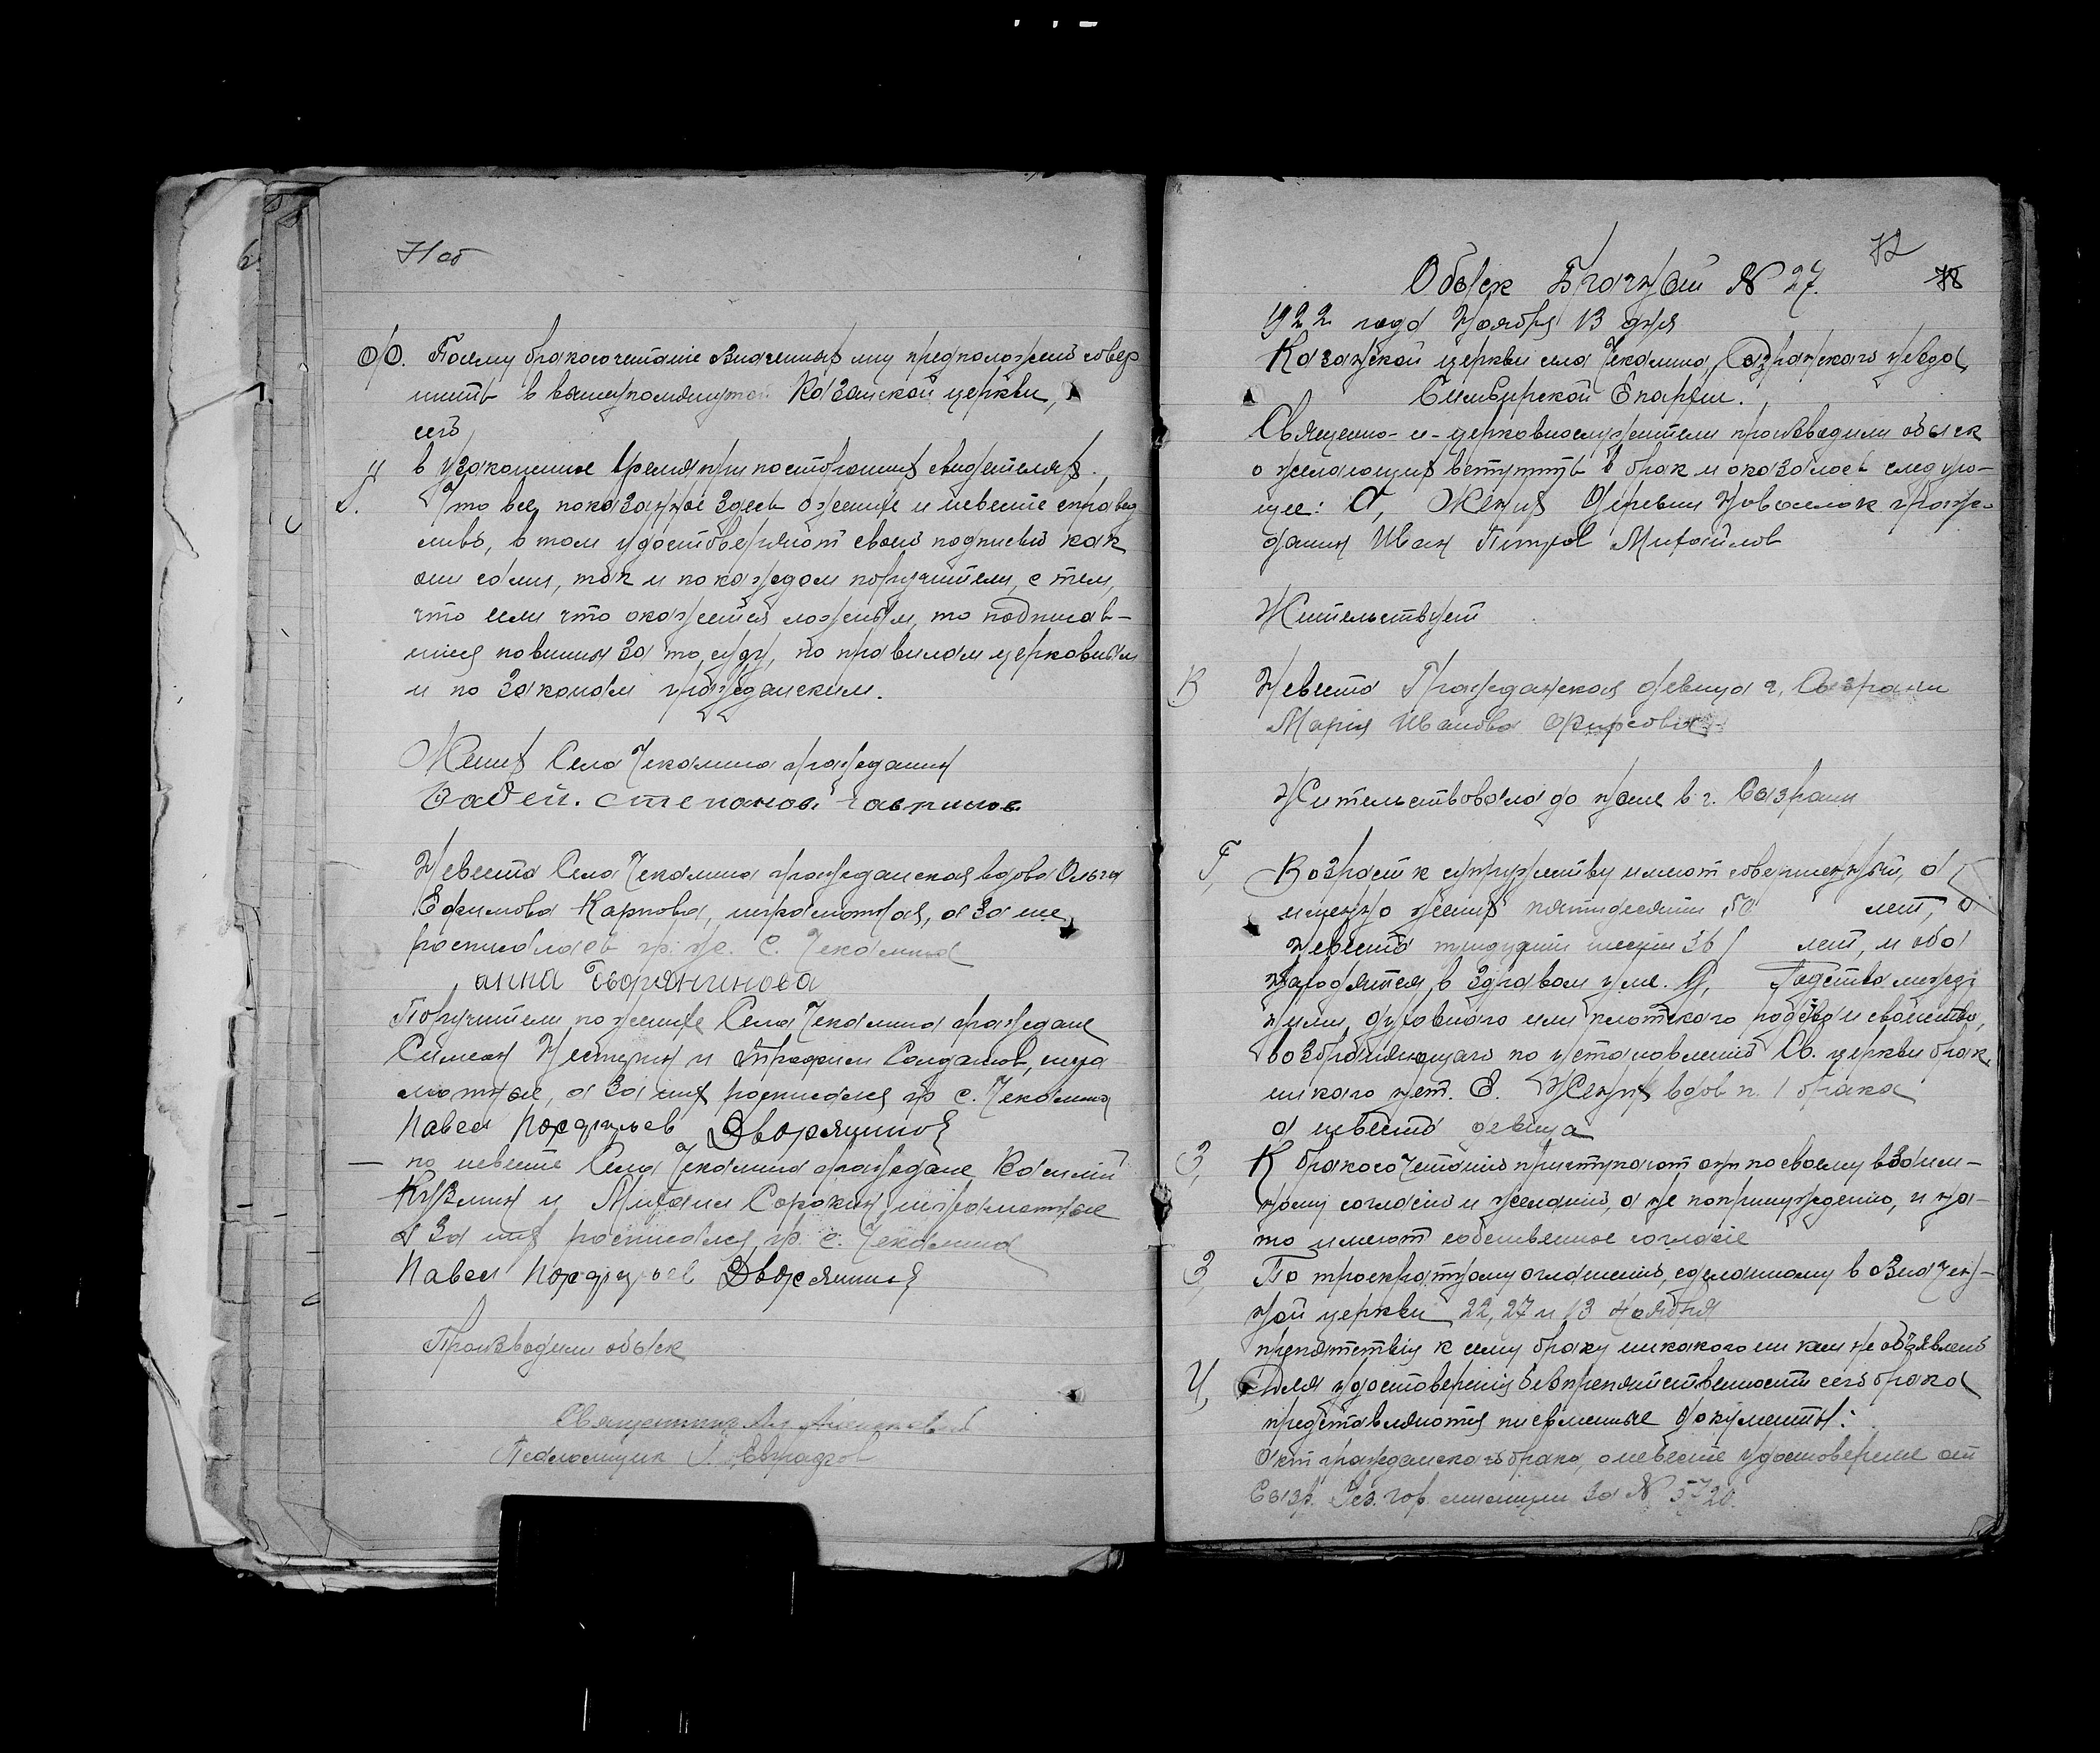 71 об
Ѳ. Поему бракосочетание означенных лиц предположено совер
шить в вышеупомянутой Казанской церкви,
сего
в узаконенное время при посторонних свидетелях.
Что все, показанное здесь о женихе и невесте справед
ливо, в том удостоверяют своею подписью как
они сами, так и по каждом поручители, с тем,
что если что окажется ложным, то подписав-
шиеся повинны за то суду, по правилам церковным
и по законам гражданским.
Жених Села Чекалина гражданин
степанов гаврилов
Невеста Села Чекалина гражданская вдова Ольга
Ефимова Карпова, неграмотная, а за нее
росписалась гр-не. с. Чекалина
анна Дворянинова
Поручители по женихе Села Чекалина граждане
Симеон и Трофим Солдатов, негра
мотные, а за них росписался гр с. Чекалина
Павел Порфирьев Дворянинов
— по невесте Села Чекалина граждане Василий
Кузмин и Михаил Сорокин, неграмотные
а за них росписался гр. с. Чекалина
Павел Порфирьев Дворянинов
Производили обыск
Священник Ал.
Псаломщик Евграфов
72
78
Обыск Брачный № 27.
1922 года Ноября 13 дня
Казанской церкви села Чекалина, Сызранского уезда,
Симбирской Епархии.
Священно-и-церковнослужители производили обыск
о желающих вступить в брак и оказалось следую-
щее: а, Жених Деревни Новоселок граж-
данин Иван Петров Михайлов
Жительствует
В Невеста Гражданская девица г. Сызрани
Мария Иванова Фирсова
Жительствовала до ныне в г. Сызрани
Г, Возраст к супружеству имеют совершенный, а
именно жених пятидесяти 50 лет, а
невеста тридцати шести 36 лет, и оба
находятся в здравом уме. Д, Родства между
ними духовного или плотского родства и свойства,
возбраняющаго по установлению Св. церкви брак,
никакого нет. Е. Жених вдов п. 1 брака
а невеста девица
З, К бракосочетанию приступают они по своему взаим-
ному согласию и желанию, а не по принуждению, и на
то имеют собственное согласие
З, По троекратному оглашению, сделанному в означен-
ной церкви 22, 27 и 13 ноября
препятствия к сему браку никакого ни кем не объявлено
И, Для удостоверения безпрепятственности сего брака
представляются письменные документы:
акт гражданского брака, о невесте удостоверение от
Сызр. Уез. гор. милиции за № 5720.